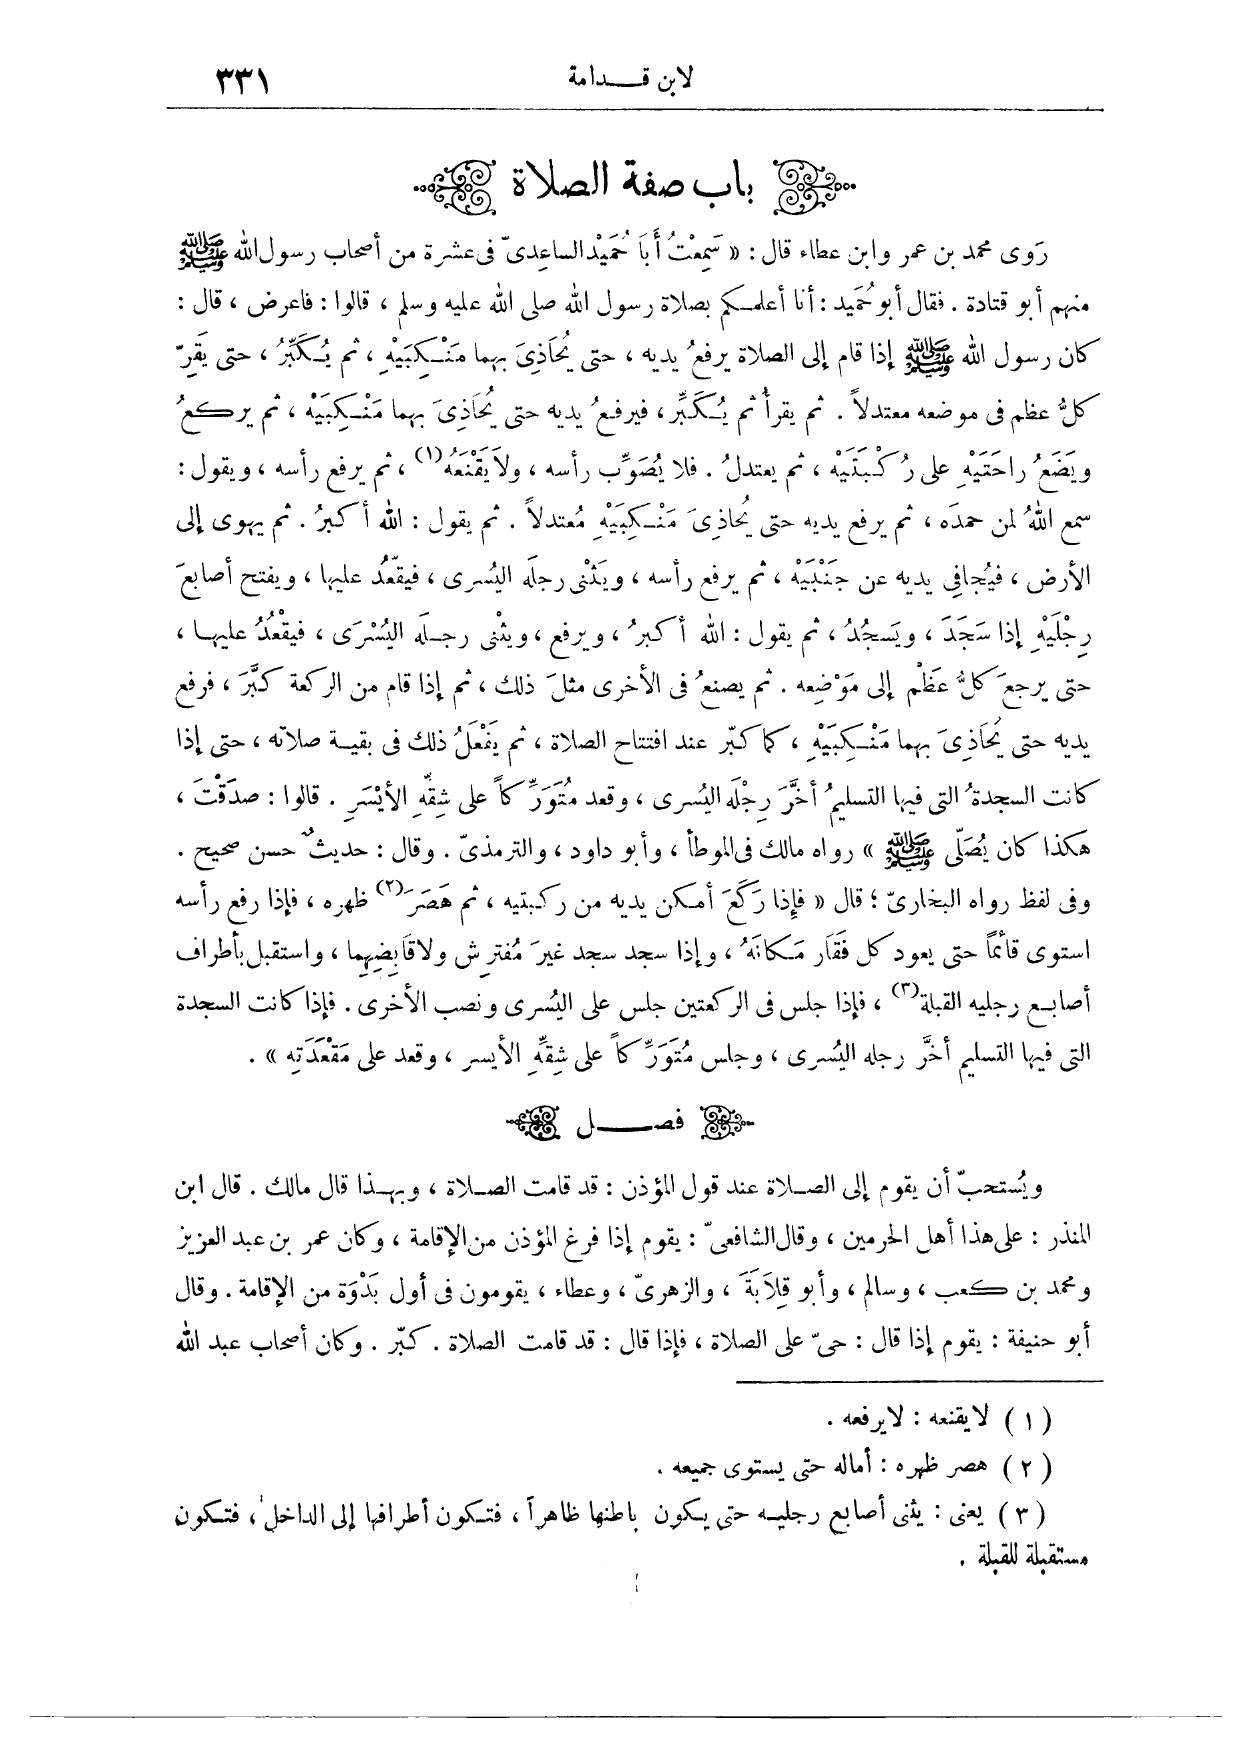 لابن قدامة ٣٣١
باب صفة الصلاة
رَوى محمد بن عمر وابن عطاء قال : « سَمِعْتُ أَبَا حُمَيْد الساعِدىّ فى عشرة من أصحاب رسول الله ﷺ
منهم أبو قتادة . فقال أبو حُمَيد : أنا أعلمكم بصلاة رسول الله صلى الله عليه وسلم ، قالوا : فاعرض ، قال :
كان رسول الله ﷺ إذا قام إلى الصلاة يرفعُ يديه ، حتى يُحَاذِىَ بهما مَنْكِبَيْهِ ، ثم يُكَبِّرُ ، حتى يَقَرّ
كلُّ عظم فى موضعه معتدلاً . ثم يقرأُ ثم يُكَبِّر ، فيرفعُ يديه حتى يُحَاذِىَ بهما مَنْكِبَيْهِ ، ثم يركعُ
ويَضَعُ راحَتَيْهِ على رُكْبَتَيْه ، ثم يعتدلُ . فلا يُصَوِّب رأسه ، ولاَ يَقْنَعَهُ(١) ، ثم يرفع رأسه ، ويقول :
سمع اللهُ لمن حمدَه ، ثم يرفع يديه حتى يُحاذِىَ مَنْكِبَيْهِ مُعتدلاً . ثم يقول : الله أكبرُ . ثم يهوى إلى
الأرض ، فيُجافِى يديه عن جَنْبَيْه ، ثم يرفع رأسه ، ويَثْنى رجلَه اليُسرى ، فيقعُد عليها ، ويفتح أصابعَ
رِجْلَيْهِ إذا سَجَدَ ، ويَسجُدُ ، ثم يقول : الله أكبرُ ، ويرفع ، ويثْنى رجلَه اليُسْرَى ، فيقْعُدُ عليها ،
حتى يرجعَ كلُّ عَظْم إلى مَوْضِعه . ثم يصنعُ فى الأخرى مثلَ ذلك ، ثم إذا قام من الركعة كبَّرَ ، فرفع
يديه حتى يُحَاذِىَ بهما مَنْكِبَيْهِ ، كما كبّر عند افتتاح الصلاة ، ثم يَفْعَلُ ذلك فى بقية صلاته ، حتى إذا
كانت السجدةُ التى فيها التسليمُ أخَّرَ رِجْلَه اليُسرى ، وقعد مُتَوَرِّكاً على شِقّهِ الأَيْسَرِ . قالوا : صدَقْتَ ،
هكذا كان يُصَلّى ﷺ » رواه مالك فى الموطأ ، وأبو داود ، والترمذىّ . وقال : حديثٌ حسن صحيح .
وفى لفظ رواه البخارىّ ؛ قال « فإذا رَكَعَ أمكن يديه من ركبتيه ، ثم هَصَرَ(٢) ظهره ، فإذا رفع رأسه
استوى قائماً حتى يعود كل فَقَار مَكانَهُ ، وإذا سجد سجد غيرَ مُفترِش ولا قَابِضِهِما ، واستقبل بأطراف
أصابع رجليه القبلة(٣) ، فإذا جلس فى الركعتين جلس على اليُسرى ونصب الأخرى . فإذا كانت السجدة
التى فيها التسليم أخَّر رجله اليُسرى ، وجلس مُتَوَرِّكاً على شِقِّهِ الأيسر ، وقعد على مَقْعَدَتِه » .
فصل
ويُستحبّ أن يقوم إلى الصلاة عند قول المؤذن : قد قامت الصلاة ، وبهذا قال مالك . قال ابن
المنذر : على هذا أهل الحرمين ، وقال الشافعىّ : يقوم إذا فرغ المؤذن من الإقامة ، وكان عمر بن عبد العزيز
ومحمد بن كعب ، وسالم ، وأبو قِلاَبَةَ ، والزهرىّ ، وعطاء ، يقومون فى أول بَدْوَة من الإقامة . وقال
أبو حنيفة : يقوم إذا قال : حىّ على الصلاة ، فإذا قال : قد قامت الصلاة . كبّر . وكان أصحاب عبد الله
(١) لا يقنعه : لا يرفعه .
(٢) هصر ظهره : أماله حتى يستوى جميعه .
(٣) يعنى : يثنى أصابع رجليه حتى يكون باطنها ظاهراً ، فتكون أطرافها إلى الداخل ، فتكون
مستقبلة للقبلة .